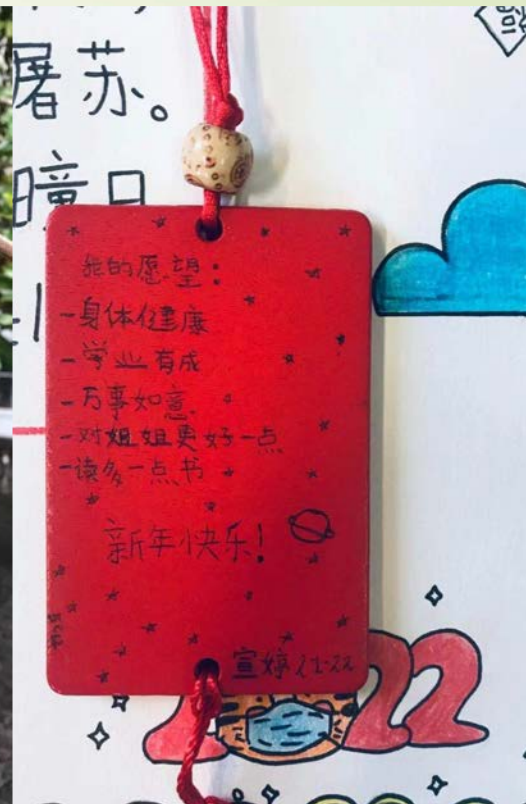 屠苏。
曈日
我的愿望：
-身体健康
-学业有成
-万事如意
-对姐姐更好一点
-读多一点书
新年快乐！
宣婷 21-22
2022